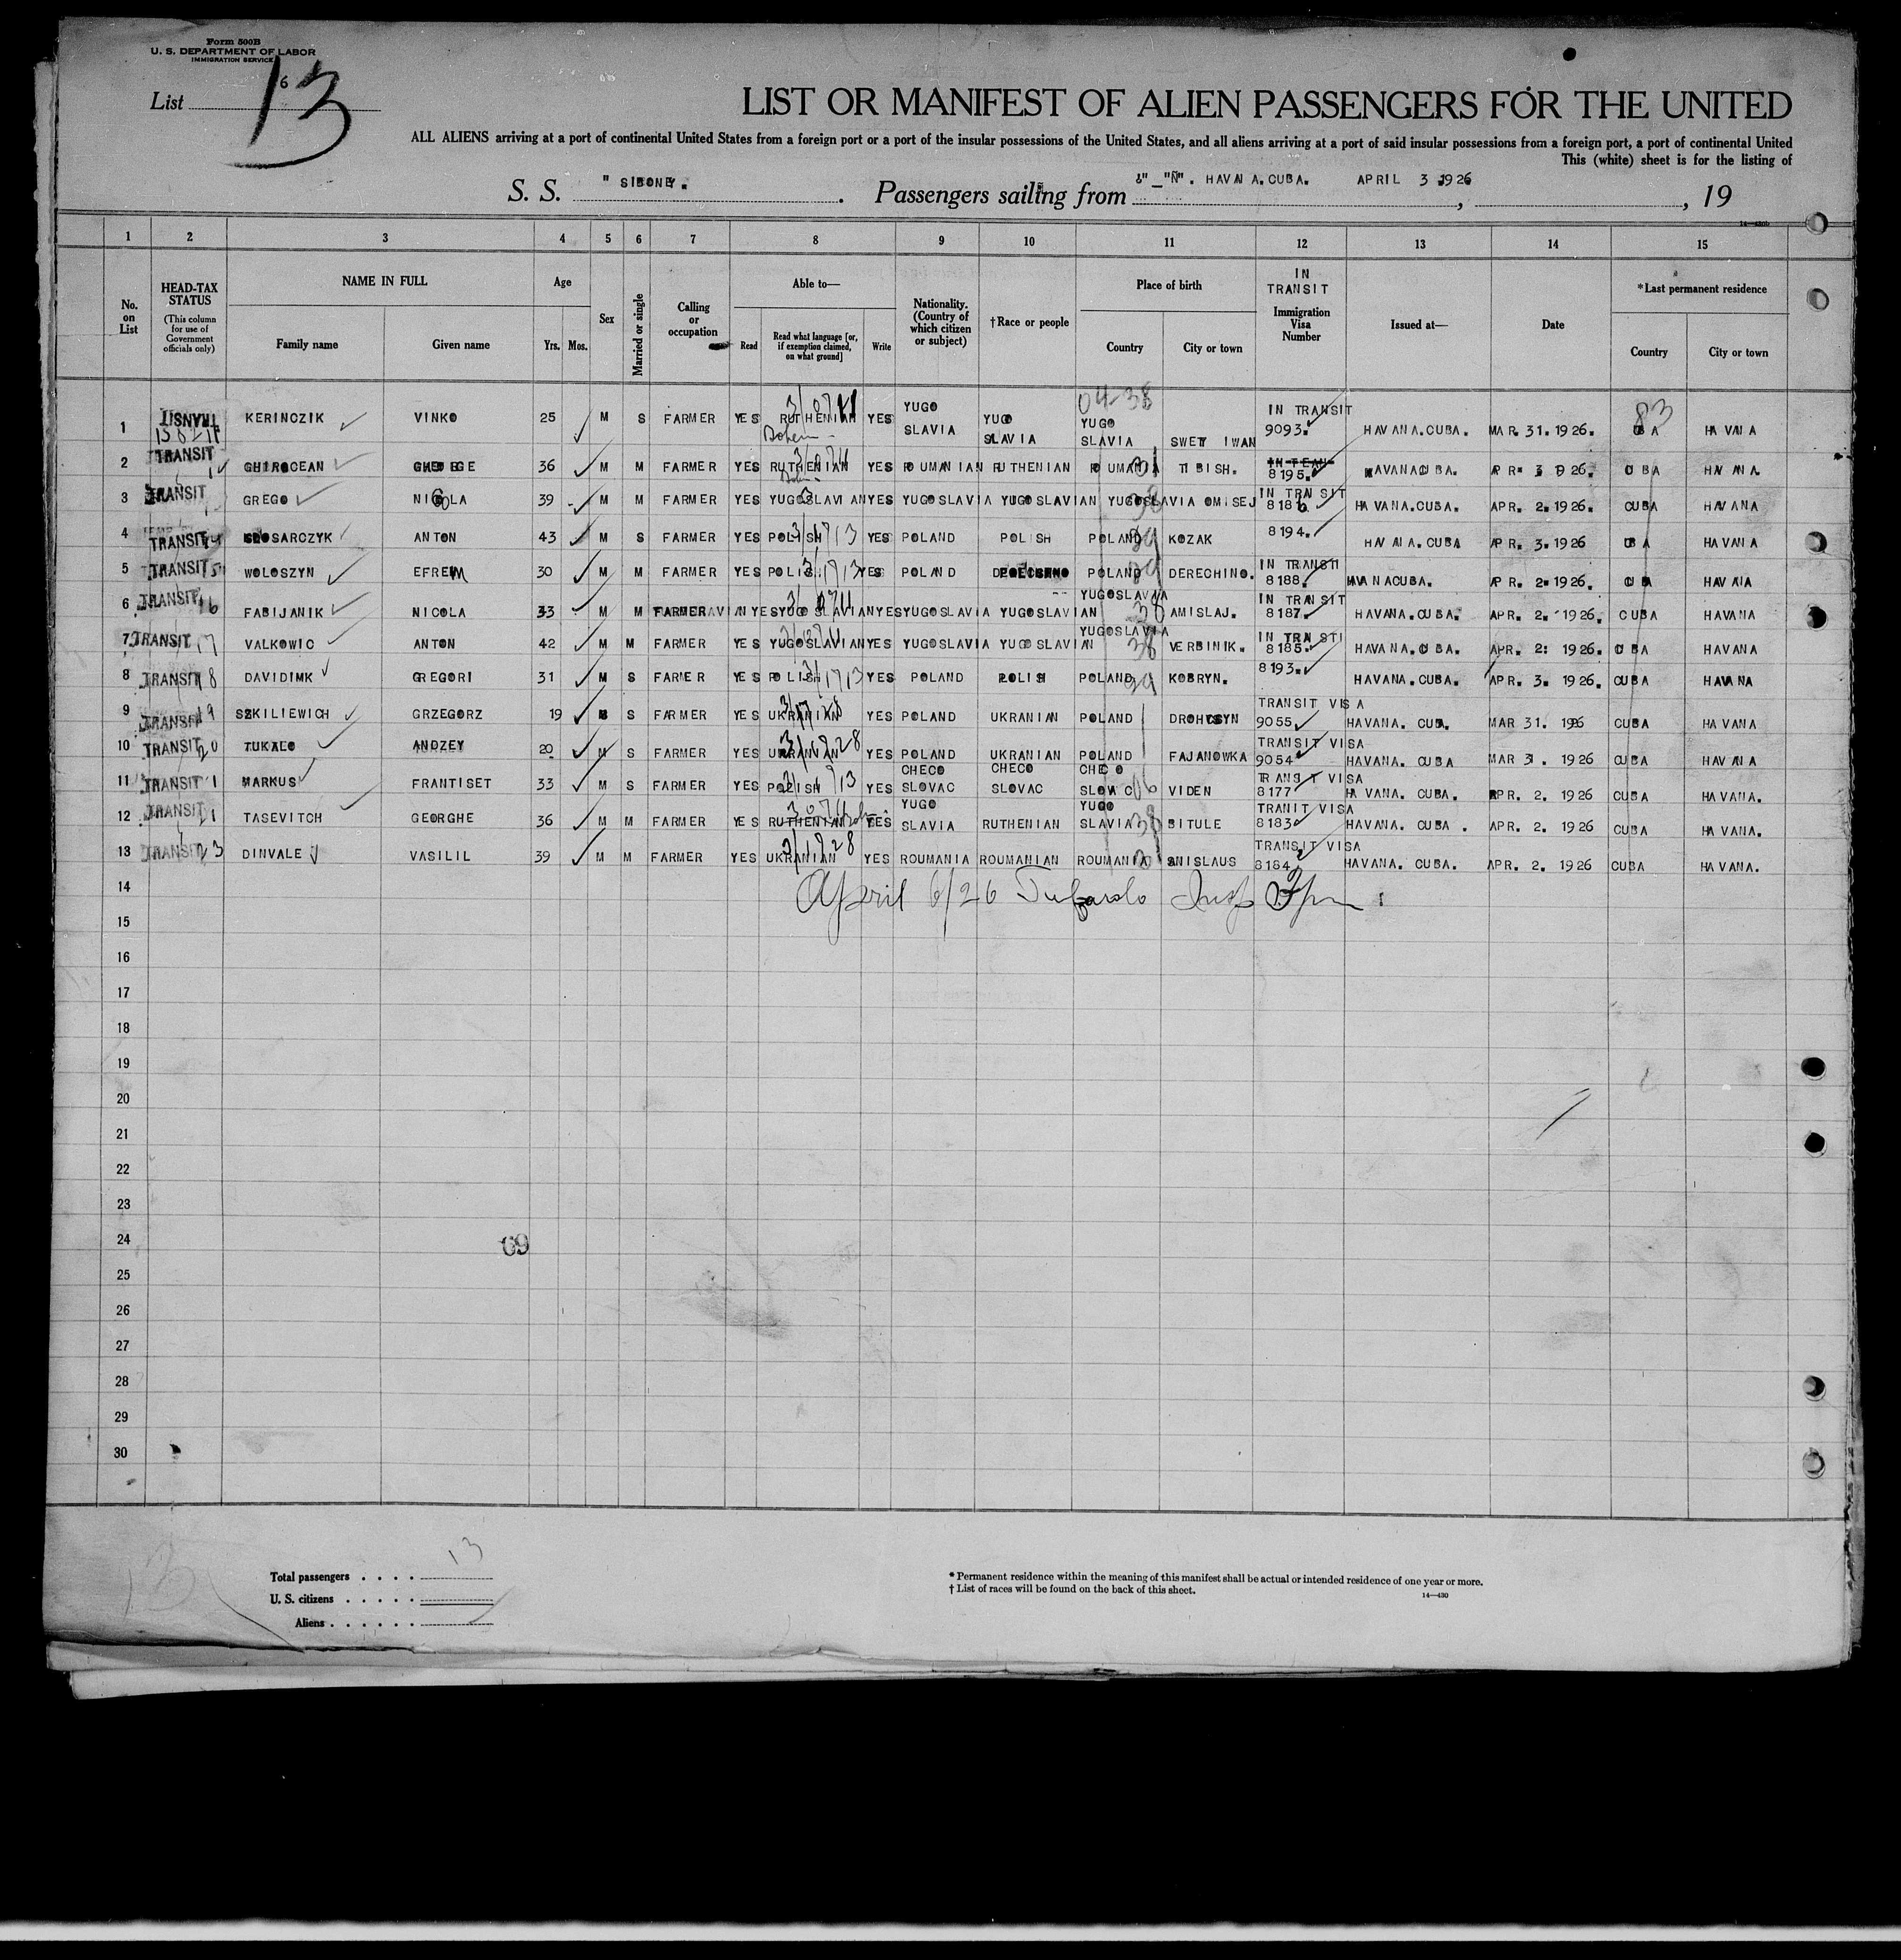 Form 500B
U. S. DEPARTMENT OF LABOR
IMMIGRATION SERVICE
6
List 13
LIST OR MANIFEST OF ALIEN PASSENGERS FOR THE UNITED
ALL ALIENS arriving at a port of continental United States from a foreign port or a port of the insular possessions of the United States, and all aliens arriving at a port of said insular possessions from a foreign port, a port of continental United
This (white) sheet is for the listing of
S. S. " SIBONEY. Passengers sailing from HAVANA.CUBA. APRIL 3 1926, 19
1 2 3 4 5 6 7 8 9 10 11 12 13 14 15
No. on List
HEAD-TAX STATUS (This column for use of Government officials only)
NAME IN FULL Family name Given name
Age Yrs. Mos.
Sex
Married or single
Calling or occupation
Able to— Read Read what language [or, if exemption claimed, on what ground] Write
Nationality. (Country of which citizen or subject)
†Race or people
Place of birth Country City or town
IN TRANSIT Immigration Visa Number
Issued at—
Date
*Last permanent residence Country City or town
1 TRANSIT KERINCZIK VINKO 25 M S FARMER YES RUTHENIAN YES YUGO SLAVIA YUGO SLAVIA YUGO SLAVIA SWETI IWAN IN TRANSIT 9093. HAVANA.CUBA. MAR.31.1926. CUBA HAVANA
2 TRANSIT GHIROCEAN 36 M M FARMER YES RUTHENIAN YES ROUMANIAN RUTHENIAN ROUMANIA TIBISH. 8195. HAVANA CUBA. APR. 3 1926. CUBA HAVANA.
3 TRANSIT GREGO NICOLA 39 M M FARMER YES YUGOSLAVIAN YES YUGOSLAVIA YUGOSLAVIAN YUGOSLAVIA OMISEJ IN TRANSIT 8186 HAVANA.CUBA. APR. 2.1926. CUBA HAVANA
4 TRANSIT ANTON 43 M S FARMER YES POLISH YES POLAND POLISH POLAND KOZAK 8194. HAVANA.CUBA APR. 3.1926 CUBA HAVANA
5 TRANSIT WOLOSZYN EFREM 30 M M FARMER YES POLISH YES POLAND POLAND DERECHINO. IN TRANSTI 8188. HAVANACUBA. APR. 2.1926. CUBA HAVANA
6 TRANSIT 16 FABIJANIK NICOLA 33 M M FARMER YES YUGO SLAVIAN YES YUGOSLAVIA YUGOSLAVIAN YUGOSLAVIA AMISLAJ. IN TRANSIT 8187. HAVANA.CUBA. APR. 2.1926. CUBA HAVANA
7 TRANSIT 17 VALKOWIC ANTON 42 M M FARMER YES YUGOSLAVIAN YES YUGOSLAVIA YUGOSLAVIAN YUGOSLAVIA 38 VERBINIK. IN TRANSTI 8185. HAVANA.CUBA. APR. 2: 1926. CUBA HAVANA
8 TRANSIT 18 DAVIDIMK GREGORI 31 M S FARMER YES POLISH YES POLAND POLISH POLAND KOBRYN. 8193. HAVANA.CUBA. APR. 3. 1926. CUBA HAVANA
9 TRANSIT 19 SZKILIEWICH GRZEGORZ 19 M S FARMER YES UKRANIAN YES POLAND UKRANIAN POLAND TRANSIT VISA 9055 HAVANA. CUBA. MAR 31. 1926 CUBA HAVANA
10 TRANSIT 20 TUKALO ANDZEY 20 M S FARMER YES UKRANIAN YES POLAND UKRANIAN POLAND FAJANOWKA TRANSIT VISA 9054 HAVANA. CUBA MAR 31. 1926 CUBA HAVANA
11 TRANSIT MARKUS FRANTISET 33 M S FARMER YES POLISH YES CHECO SLOVAC CHECO SLOVAC CHECO SLOVAC VIDEN TRANSIT VISA 8177 HAVANA. CUBA. APR. 2. 1926 CUBA HAVANA.
12 TRANSIT TASEVITCH GEORGHE 36 M M FARMER YES RUTHENIAN YES YUGO SLAVIA RUTHENIAN YUGO SLAVIA 38 BITULE TRANIT VISA 8183 HAVANA. CUBA . APR. 2. 1926 CUBA HAVANA.
13 TRANSIT 23 DINVALE VASILIL 39 M M FARMER YES UKRANIAN YES ROUMANIA ROUMANIAN ROUMANIA SNISLAUS TRANSIT VISA 8184 HAVANA. CUBA. APR. 2. 1926 CUBA HAVANA.
14 April 6/26
15
16
17
18
19
20
21
22
23
24 69
25
26
27
28
29
30
Total passengers . . . . 13
U. S. citizens . . . . .
Aliens . . . . . .
* Permanent residence within the meaning of this manifest shall be actual or intended residence of one year or more.
† List of races will be found on the back of this sheet.
14—430